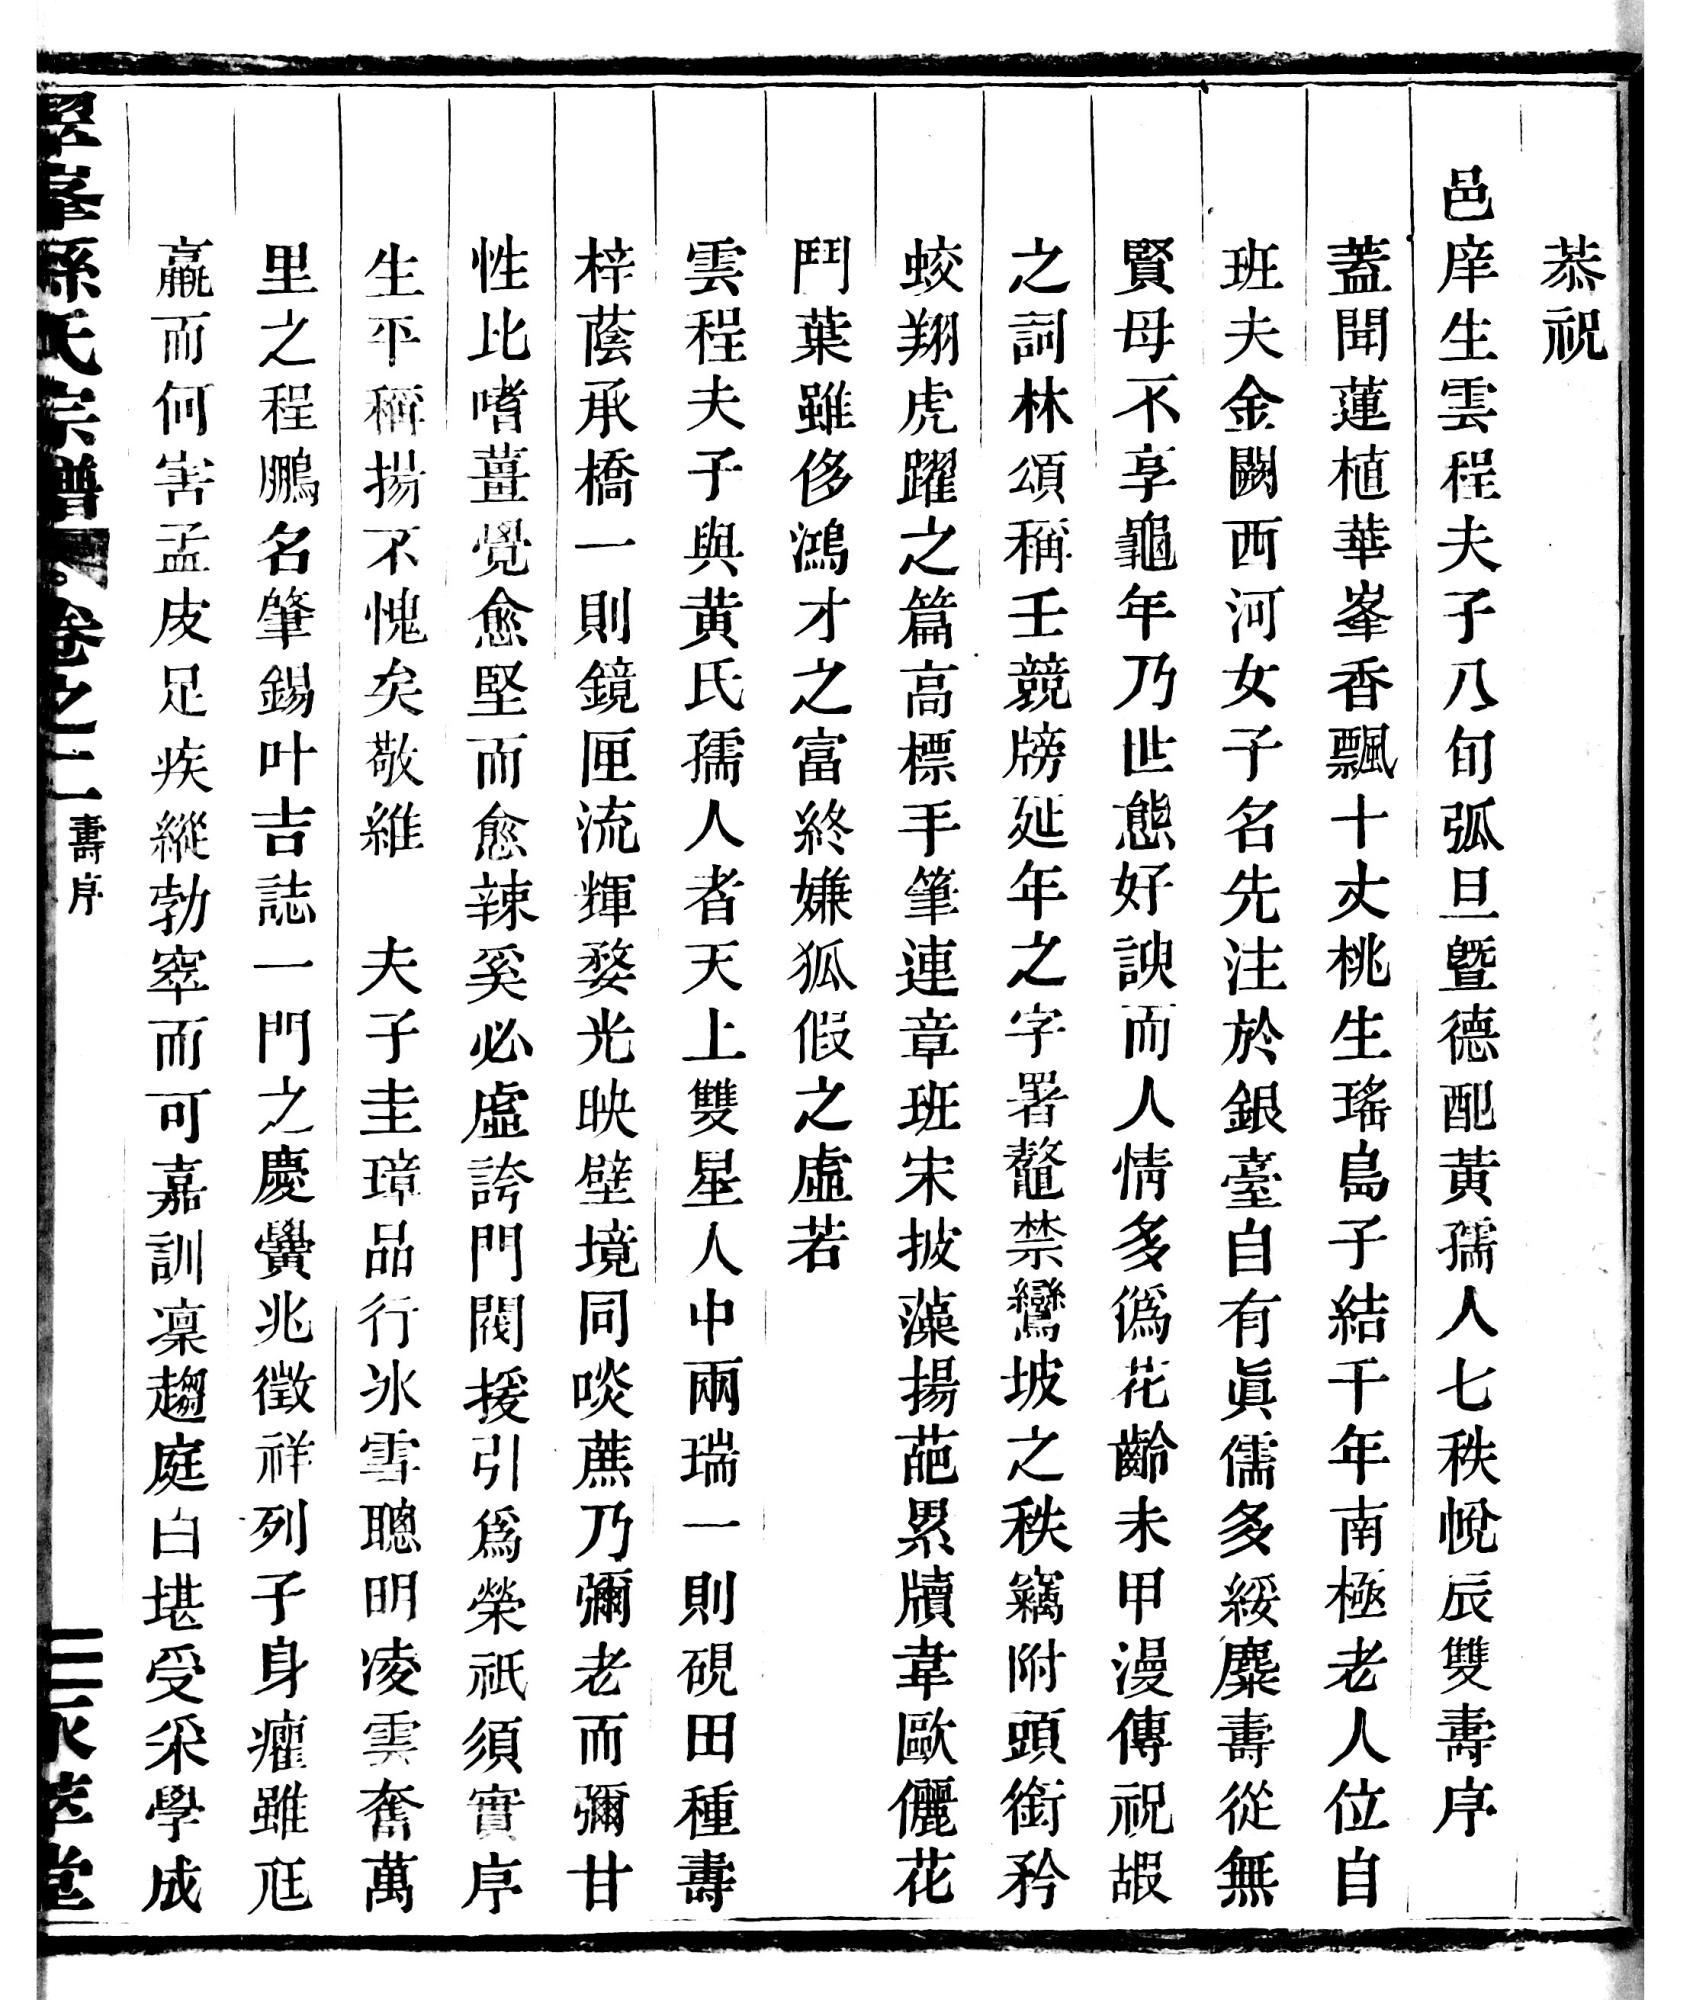 恭祝
邑庠生雲程夫子八旬弧旦曁德配黃孺人七秩帨辰雙壽序
蓋聞蓮植華峯香飄十丈桃生瑤島子結千年南極老人位自
班夫金闕西河女子名先注於銀臺自有眞儒多綏麋壽從無
賢母不享龜年乃世態好諛而人情多僞花齡未甲漫傳祝嘏
之詞林頌稱壬競牓延年之字署鼇禁鸞坡之秩竊附頭銜矜
蛟翔虎躍之篇高標手筆連章班宋披藻揚葩累牘韋歐儷花
鬥葉雖侈鴻才之富終嫌狐假之虛若
雲程夫子與黄氏孺人者天上雙星人中兩瑞一則硯田種壽
梓蔭承橋一則鏡匣流輝婺光映壁境同啖蔗乃彌老而彌甘
性比嗜薑覺愈堅而愈辣奚必虛誇門閥援引爲榮祇須實序
生平稱揚不愧矣敬維　夫子圭璋品行氷雪聰明凌雲奮萬
里之程鵬名肇錫叶吉誌一門之慶黌兆徵祥列子身癯雖尪
羸而何害孟皮足疾縱勃窣而可嘉訓凜趨庭白堪受采學成
翠峯孫氏宗譜 卷之二 壽序 三 永萃堂